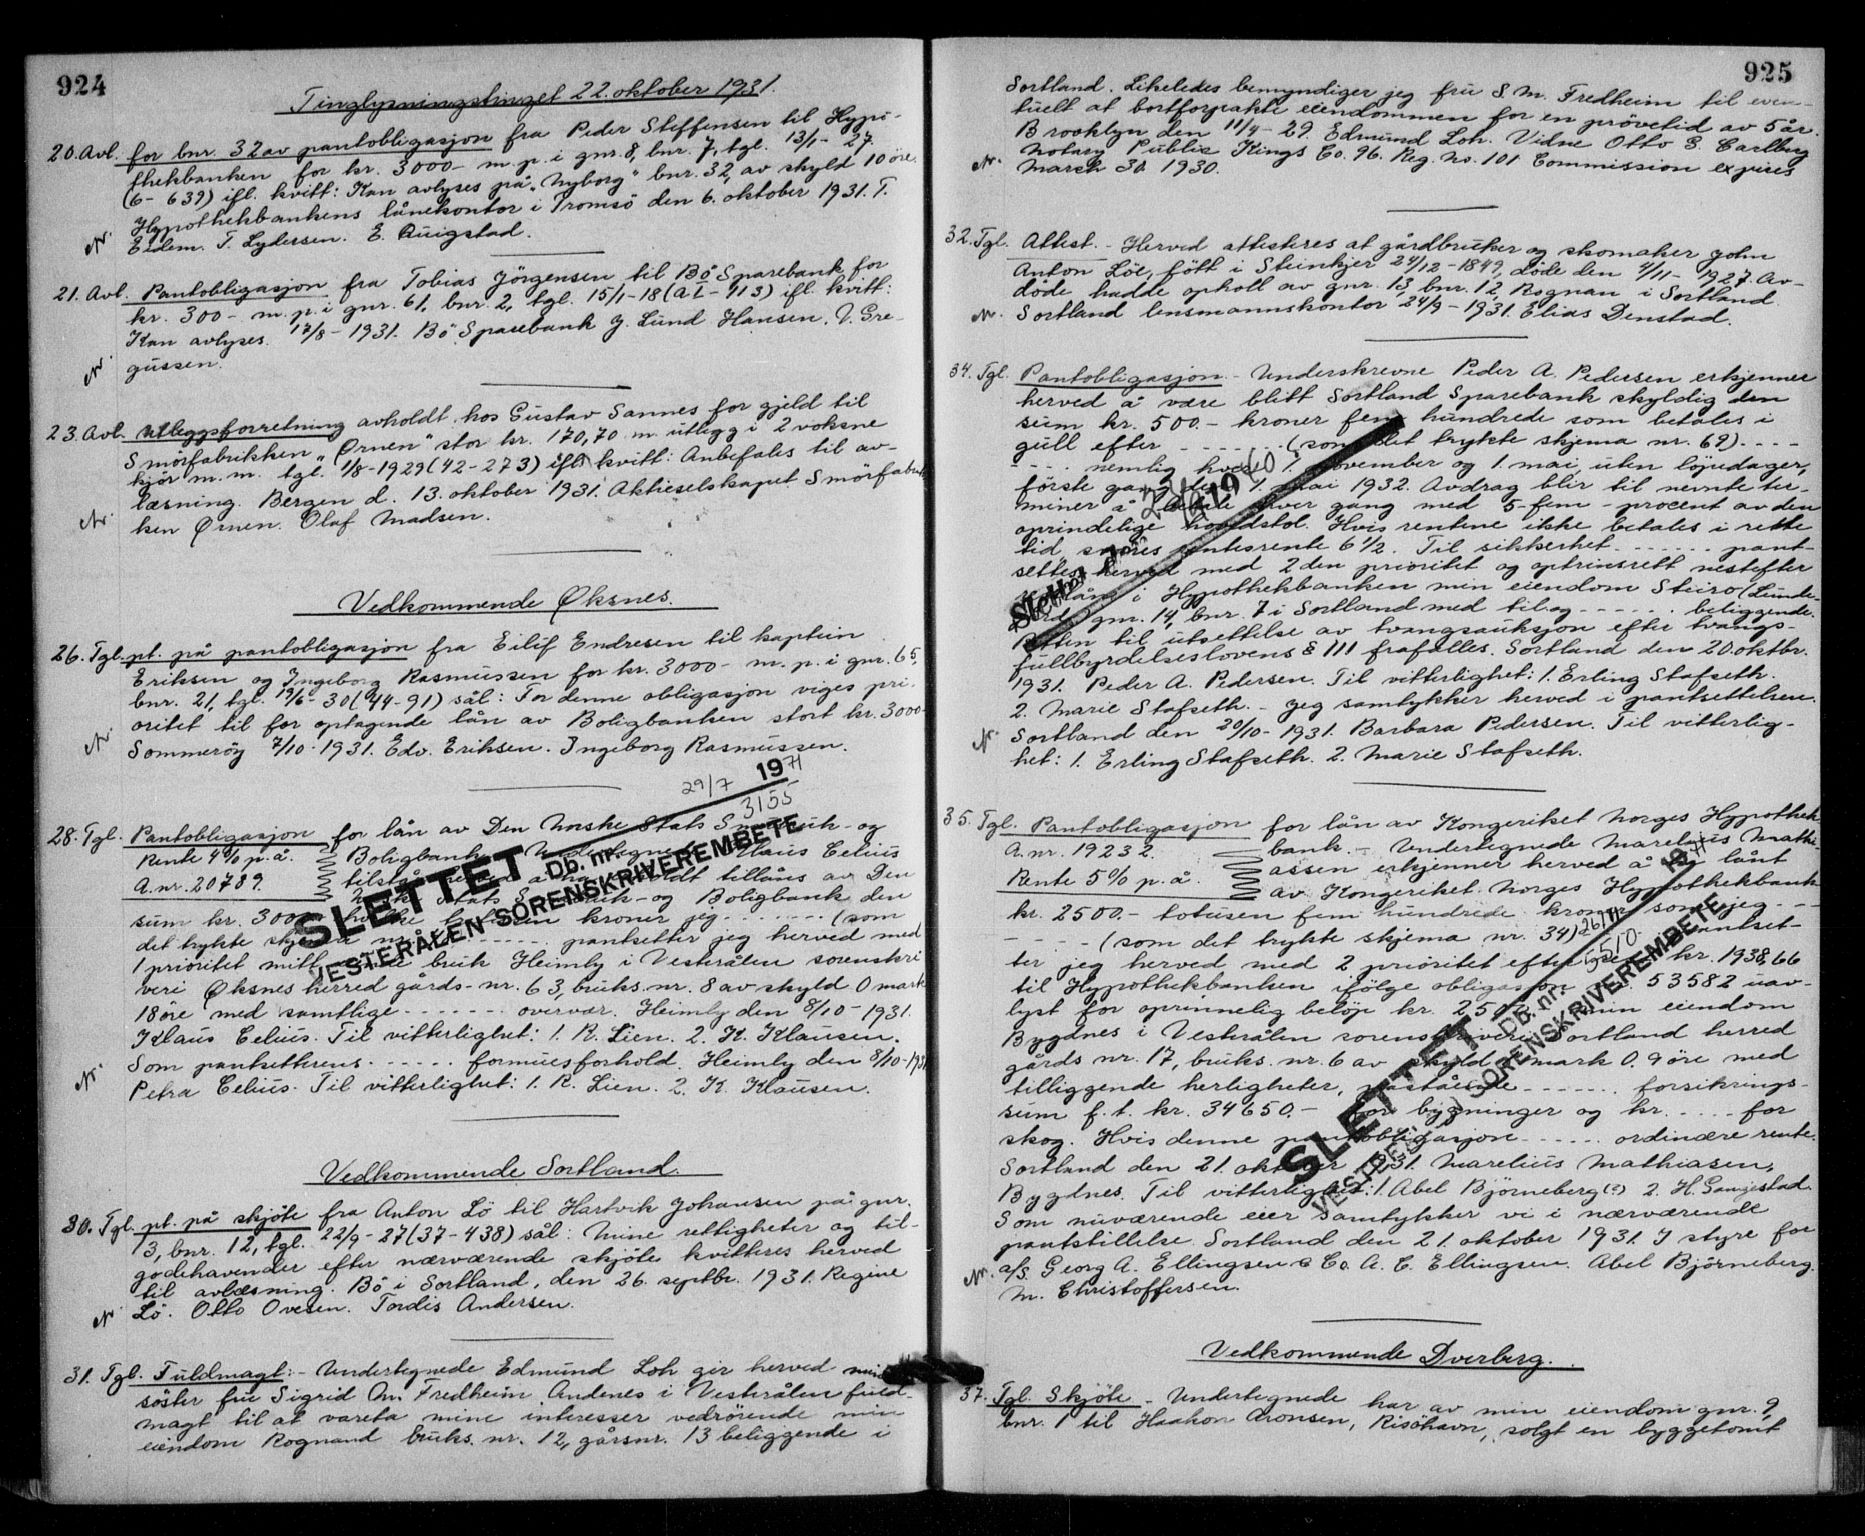 924
Tinglysningstinget 22. oktober 1931.
20. Avl. for bnr. 32 av pantobligasjon fra Peder Steffensen til Hypo-
thekbanken for kr. 3000- m. p. i gnr. 8, bnr. 7, tgl. 13/1- 27.
(6- 639) ifl. kvitt: Kan avlyses på "Nyborg" bnr. 32, av skyld 10 öre.
Hypothekbankens lånekontor i Tromsö den 6. oktober 1931. T.
Eidem. T. Lydersen. E. Ruigstad.
21. Avl. Pantobligasjon fra Tobias Jörgensen til Bö Sparebank for
kr. 300- m. p. i gnr. 61, bnr. 2, tgl. 15/1-18 (aI- 113) ifl. kvitt:
Kan avlyses. 17/8- 1931. Bö Sparebank J. Lund Hansen. V. Gre-
gussen.
23. Avl. Utleggsforretning avholdt hos Gustav Sannes for gjeld til
Smörfabrikken "Ørnen" stor kr. 170,70 m. utlegg i 2 voksne
kjör m. m. tgl. 1/8-1929 (42-273) ifl. kvitt: Anbefales til av-
læsning. Bergen d. 13. oktober 1931. Aktieselskapet Smörfabrik-
ken Ørnen. Olaf Madsen.
Vedkommende Øksnes.
26. Tgl. pt. på pantobligasjon fra Eilif Endresen til kaptein
Eriksen og Ingeborg Rasmussen for kr. 3000- m. p. i gnr. 65,
bnr. 21, tgl. 19/6- 30 (44-91) sål: For denne obligasjon viges pri-
oritet til for optagende lån av Boligbanken stort kr. 3000-
Sommeröy 7/10- 1931. Edv. Eriksen. Ingeborg Rasmussen.
29/7 1971
3155
28. Tgl. Pantobligasjon for lån av Den Norske Stats Småbruk- og
Rente 4% p. å. Boligbank. Undertegnede Klaus Celius
A. nr. 20789. tilstår herved å ha erholdt tillåns av Den
norske Stats Småbruk- og Boligbank den
sum kr. 3000 hvilke kroner jeg ...... (som
det trykte skjema nr. ...... pantsetter jeg herved med
1 prioritet mitt bruk Heimly i Vesterålen sorenskri
veri Øksnes herred gårds- nr. 63, bruks. nr. 8 av skyld 0 mark
18 öre med samtlige ...... overvar. Heimly den 8/10- 1931.
Klaus Celius. Til vitterlighet: 1. R. Lien. 2. K. Klausen.
Som pantsetterens ...... formuesforhold. Heimly den 8/10-1931
Petra Celius. Til vitterlighet: 1. R. Lien. 2. K. Klausen.
SLETTET Db. nr.
VESTERÅLEN SORENSKRIVEREMBETE
Vedkommende Sortland.
30. Tgl. pt. på skjöte fra Anton Lö til Hartvik Johansen på gnr.
13, bnr. 12, tgl. 22/9- 27 (37-438) sål: Mine rettigheter og til-
godehavender efter nærværende skjöte kvitteres herved
til avlæsning. Bö i Sortland, den 26. septbr. 1931. Regine
Lö. Otto Ovesen. Tordis Andersen.
31. Tgl. Fuldmagt:- Undertegnede Edmund Loh gir herved min
söster fru Sigrid M. Fredheim Andenes i Vesterålen fuld-
magt til at vareta mine interesser vedrörende min
eiendom Rognand bruks. nr. 12, gårsnr. 13 beliggende i
925
Sortland. Likeledes bemyndiger jeg fru S. M. Fredheim til even-
tuelt at bortforpakte eiendommen for en prövetid av 5 år.
Brooklyn den 11/4- 29. Edmund Loh. Vidne Otto E. Carlberg
Notary Public Kings Co. 96. Reg. No. 101 Commission expires
March 30 1930.
32. Tgl. Attest.- Herved attesteres at gårdbruker og skomaker John
Anton Löe, fött i Steinkjer 24/12-1849, döde den 4/11-1927. Av-
döde hadde ophold av gnr. 13, bnr. 12, Rognan i Sortland
Sortland lensmannskontor 24/9- 1931. Elias Denstad.
34. Tgl. Pantobligasjon.- Underskrevne Peder A. Pedersen erkjenner
herved å være blitt Sortland Sparebank skyldig den
sum kr. 500.- kroner fem hundrede som betales i
gull efter ...... (som det trykte skjema nr. 69) ....
.... nemlig hver 1. november og 1. mai, uten löpedager,
förste gang den 1. mai 1932. Avdrag blir til nevnte ter-
miner å betale hver gang med 5-fem- procent av den
oprindelige hovedstol. Hvis rentene ikke betales i rette
tid, svares renters rente 6 1/2. Til sikkerhet ...... pant-
settes herved med 2den prioritet og optrinsrett nestefter
i Hypothekbanken min eiendom Steiro (Lunde-
gnr. 14, bnr. 7 i Sortland med til og ...... beliggende.
Retten til utsettelse av tvangsauksjon efter tvangs-
fullbyrdelseslovens § 111 frafalles. Sortland den 20. oktbr.
1931. Peder A. Pedersen. Til vitterlighet: 1. Erling Stafseth.
2. Marie Stafseth.- Jeg samtykker herved i pantsettelsen.
Sortland den 20/10- 1931. Barbara Pedersen. Til vitterlig-
het: 1. Erling Stafseth. 2. Marie Stafseth.
35. Tgl. Pantobligasjon for lån av Kongeriket Norges Hypothek
A. nr. 19232. bank.- Undertegnede Marelius Mathi-
Rente 5% p. å. assen erkjenner herved å ha lånt
av Kongeriket Norges Hypothekbank
kr. 2500.- totusen fem hundrede kroner som jeg ...
.... (som det trykte skjema nr. 34) pantset-
ter jeg herved med 2 prioritet efter kr. 1938,66
til Hypothekbanken ifölge obligasjon nr. 53582 uav-
lyst for oprinnelig belöp kr. 2500 min eiendom
Bygdnes i Vesterålen sorenskriveri Sortland herred
gårds nr. 17, bruks. nr. 6 av skyld mark 0.9 öre med
tilliggende herligheter, påstående ...... forsikrings-
sum f. t. kr. 34650.- for bygninger og kr. .... for
skog. Hvis denne pantobligasjon ...... ordinære rente.
Sortland den 21. oktober 1931. Marelius Mathiasen,
Bygdnes. Til vitterlighet: 1. Abel Björneberg (?) 2. H. Gangestad.
Som nuværende eier samtykker vi i nærværende
pantstillelse. Sortland den 21. oktober 1931. I styre for
a/s. Georg A. Ellingsen & Co. A. C. Ellingsen. Abel Björneberg.
M. Christoffersen.
SLETTET Db. nr.
SORENSKRIVEREMBETE
Vedkommende Dverberg.
37. Tgl. Skjöte.- Undertegnede har av min eiendom gnr. 9,
bnr. 1 til Haakon Aronsen, Risöhavn, solgt en byggetomt